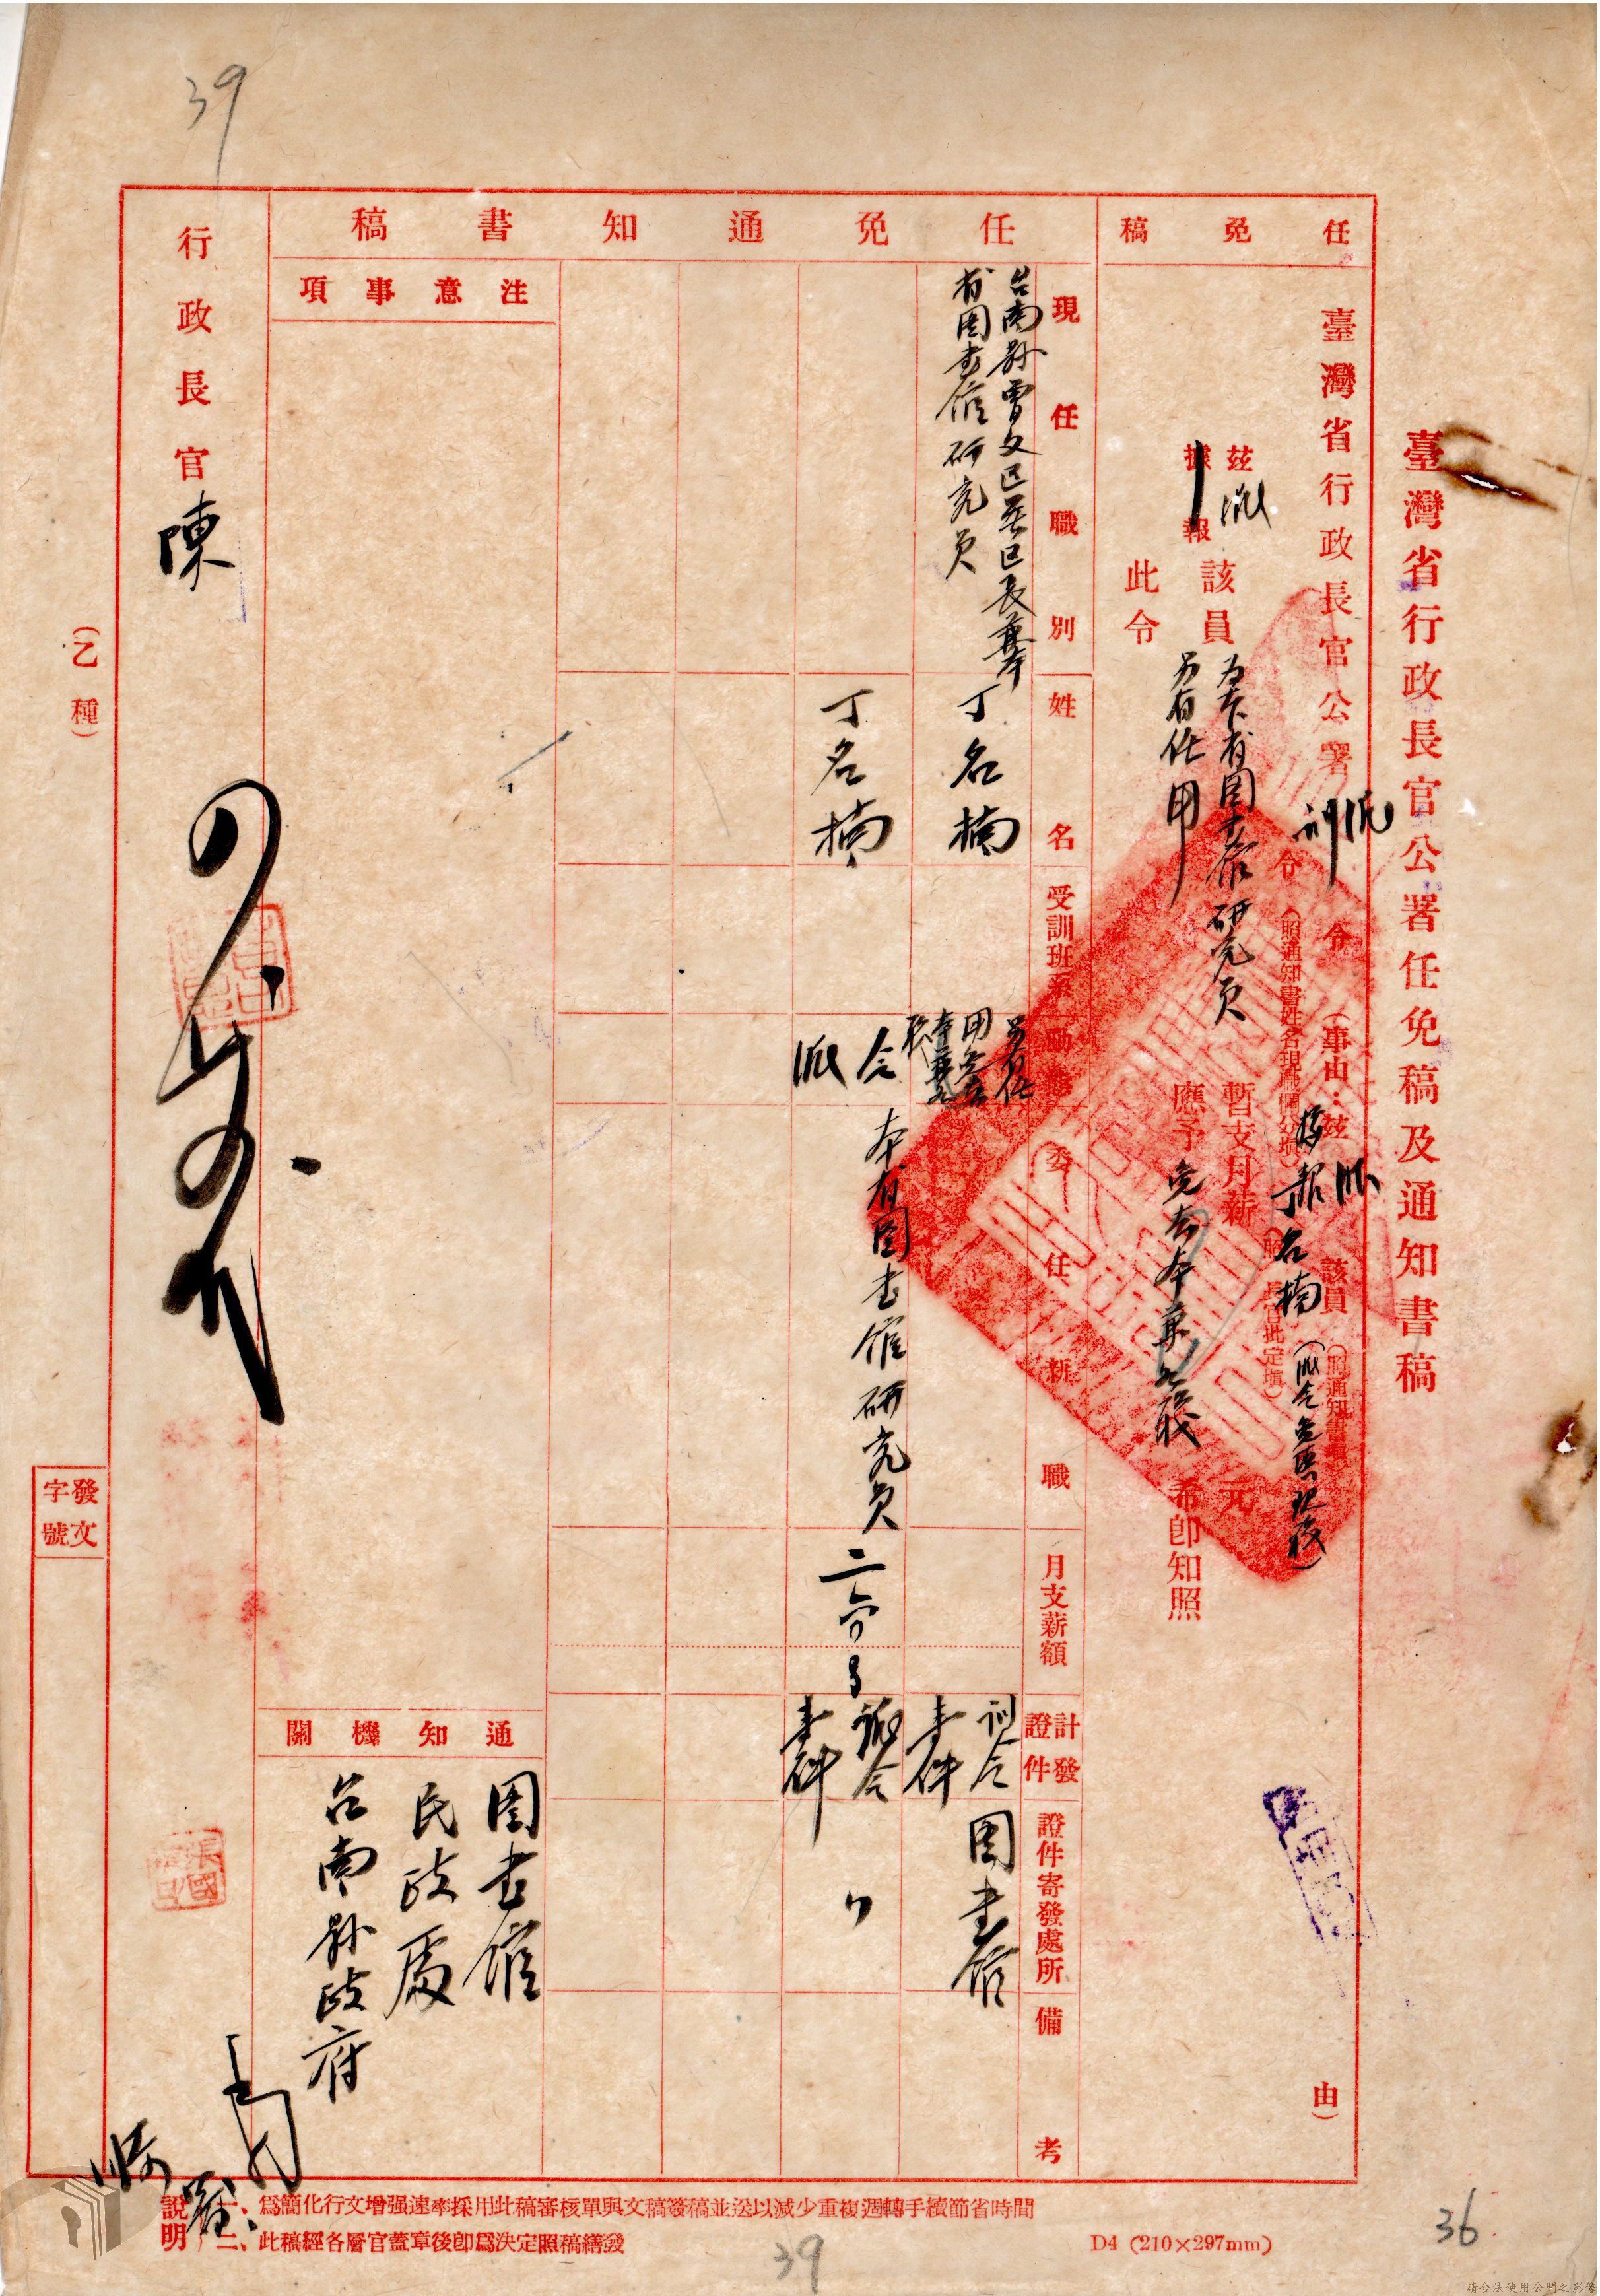 39
臺灣省行政長官公署任免稿及通知書稿
任免稿
臺灣省行政長官公署
派
訓
令
令
(事由:茲派
據報
該員
由)
(照通知書姓名現職欄分填)
丁名楠(派令免原現核)
茲派
該員
為本省图书馆研究员
暫支月薪
元
據報
另有任用
應予
免去本兼各職
希卽知照
此令
任免通知書稿
現任職別
姓名
受訓班系
動態
委任新職
月支薪額
計發證件
證件寄發處所
備考
台南縣曾文区署区长兼本
省图书馆研究员
丁名楠
另有任
用免去
本兼各
职
訓令
壹件
图书馆
丁名楠
派令
本省图书馆研究员
二六〇
派令
壹件
〃
注意事項
通知機關
图书馆
民政處
台南縣政府
行政長官陳
(乙種)
發文字號
說明
一、爲簡化行文增强速率採用此稿審核單與文稿簽稿並送以減少重複週轉手續節省時間
二、此稿經各層官蓋章後卽爲決定照稿繕發
D4 (210×297mm)
39
36
請合法使用公開之影像